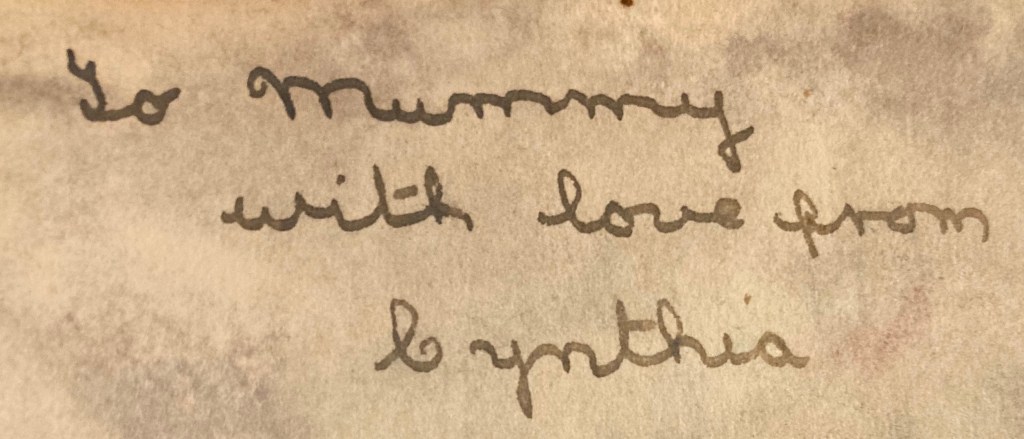 To Mummy
with love from
Cynthia